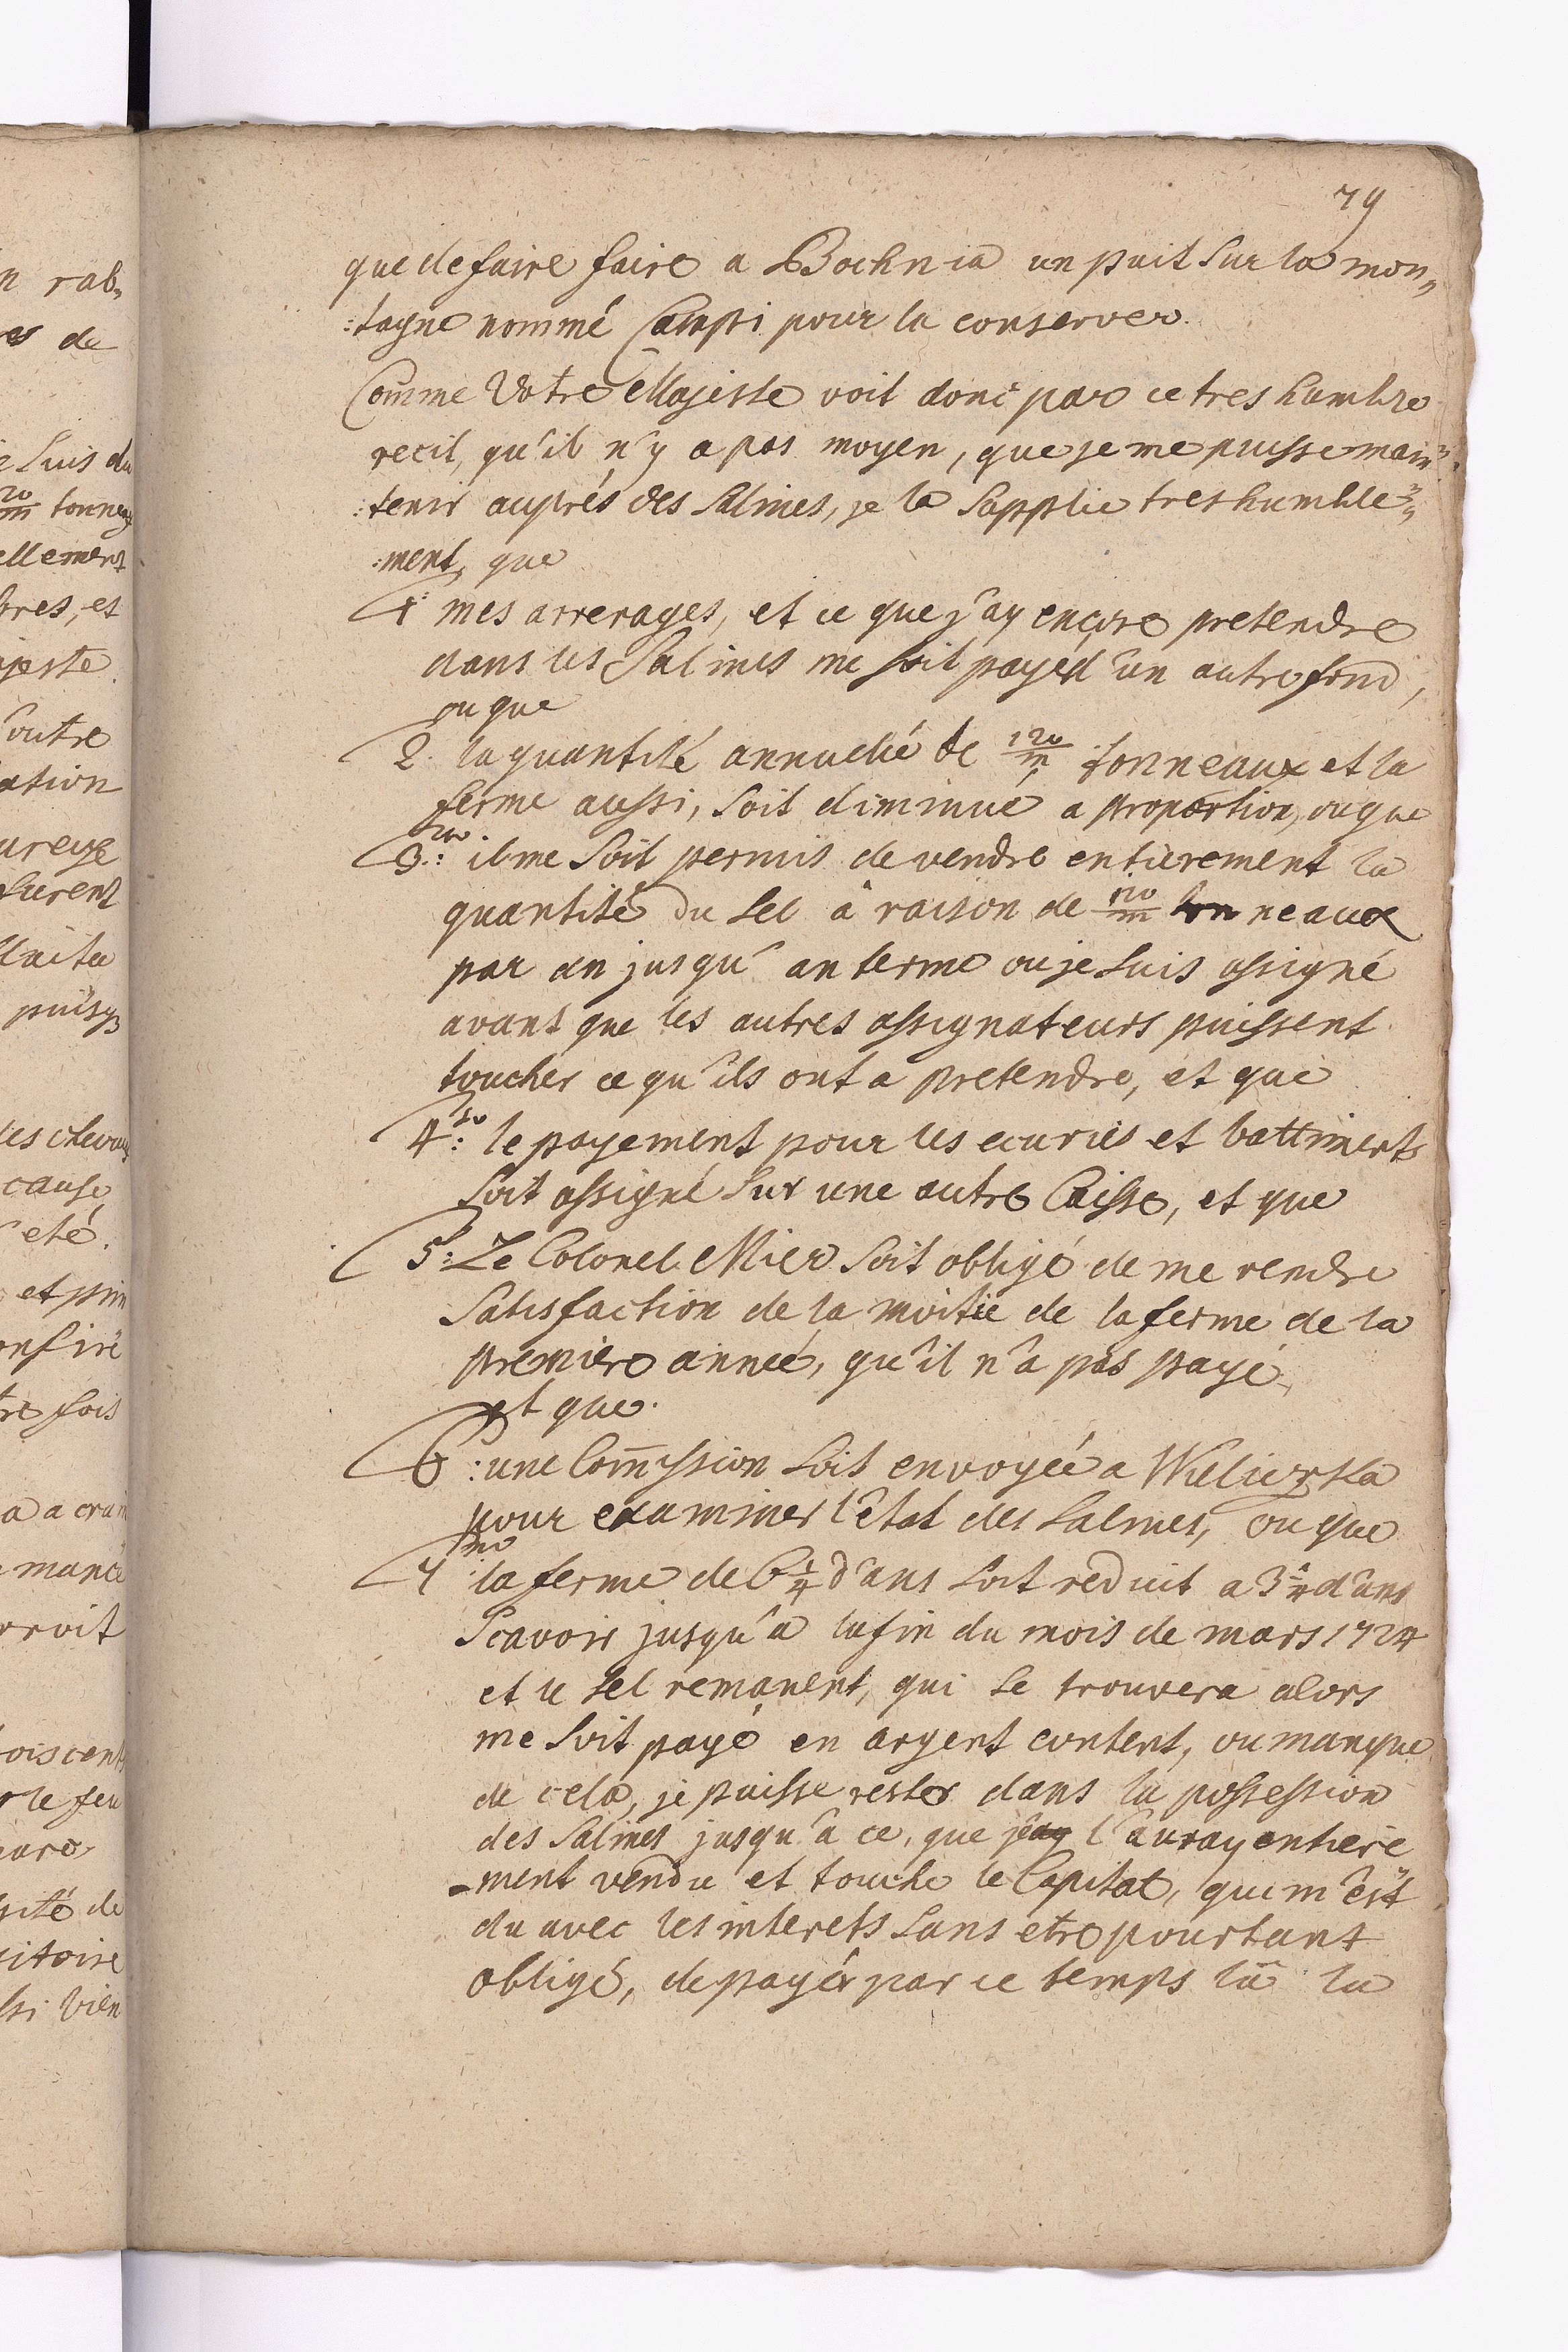 79
que de faire faire a Bochnia un puit sur la mon„
:tagne nommé Campi pour la conserver.
Com̄e Votre Majeste voit donc par ce tres humble
recit, qu'il n'y a pas moyen, que je me puisse main„
:tenir auprés des Salines, je la supplie tres humble„
:ment, que
1: mes arrerages, et ce que j'ay encore pretendre
dans les Salines me soit payé d'un autre fond,
ou que
2. la quantité annuelle de 120/m tonneaux et la
ferme aussi, soit diminué a proportion, ou que
3tio: il me soit permis de vendre entierement la
quantité du sel à raison de 120/m tonneaux
par an jusqu' au terme ou je suis assigné
avant que les autres assignateurs puissent
toucher ce qu'ils ont a pretendre, et que
4to: le payement pour les ecuries et battiments
soit assigné sur une autre Caisse, et que
5: Le Colonel Mier soit obligé de me rendre
satisfaction de la moitie de la ferme de la
premiere année, qu'il n'a pas payé
et que.
6: une Com̄ission soit envoyée a Wieliczka
pour examiner l'etat des Salines, ou que
7mo: la ferme de 6 1/4 d'ans soit reduit a 3 1/4 d'ans
Scavoir jusqu'à la fin du mois de mars 1724
et le sel remanent, qui se trouvera alors
me soit payé en argent content, ou manque
de cela, je puisse rester dans la possession
des Salines jusqu'à ce, que l'auray entiere
-ment vendu et touche le Capital, qui m'est
du avec les interets sans etre pourtant
obligé, de payér par ce temps là la
n rab„
es de
e suis du
20/m tonneaux
ellement
bres, et
ajeste.
outre
ation
ureuse
furent
puisq
les chevaux
cause
été.
et prin
onfire
tre fois
a a crain
mance
rroit
rois cent
r le feu
sité de
sitoire
ssi bien